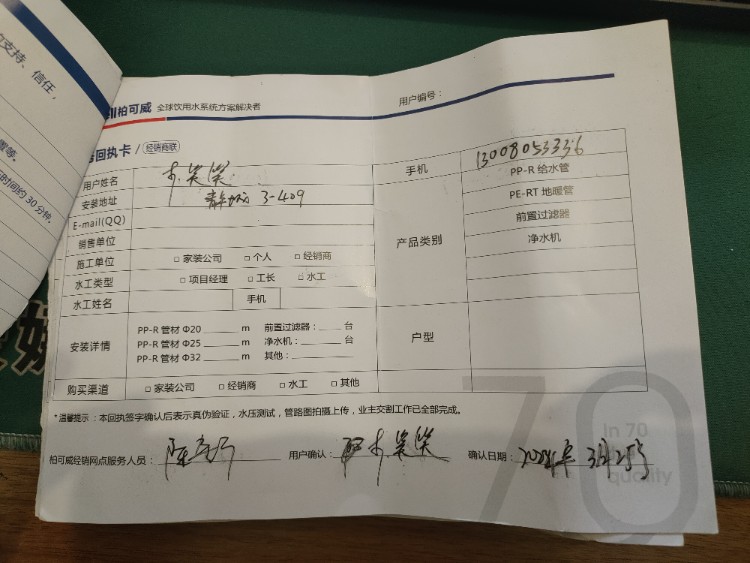 的支持、信任，
需等。
时间约30分钟。
柏可威 全球饮用水系统方案解决者
用户编号：
回执卡 / 经销商联
用户姓名
手机 13008053336
安装地址 3-409
E-mail(QQ)
销售单位
施工单位 □ 家装公司 □ 个人 □ 经销商
水工类型 □ 项目经理 □ 工长 □ 水工
水工姓名 手机
产品类别
PP-R 给水管
PE-RT 地暖管
前置过滤器
净水机
安装详情
PP-R 管材 Φ20 ____ m 前置过滤器：____ 台
PP-R 管材 Φ25 ____ m 净水机：____ 台
PP-R 管材 Φ32 ____ m 其他：____
户型
购买渠道 □ 家装公司 □ 经销商 □ 水工 □ 其他
*温馨提示：本回执签字确认后表示真伪验证，水压测试，管路图拍摄上传，业主交割工作已全部完成。
70
In 70
quality
柏可威经销网点服务人员： 用户确认： 确认日期：